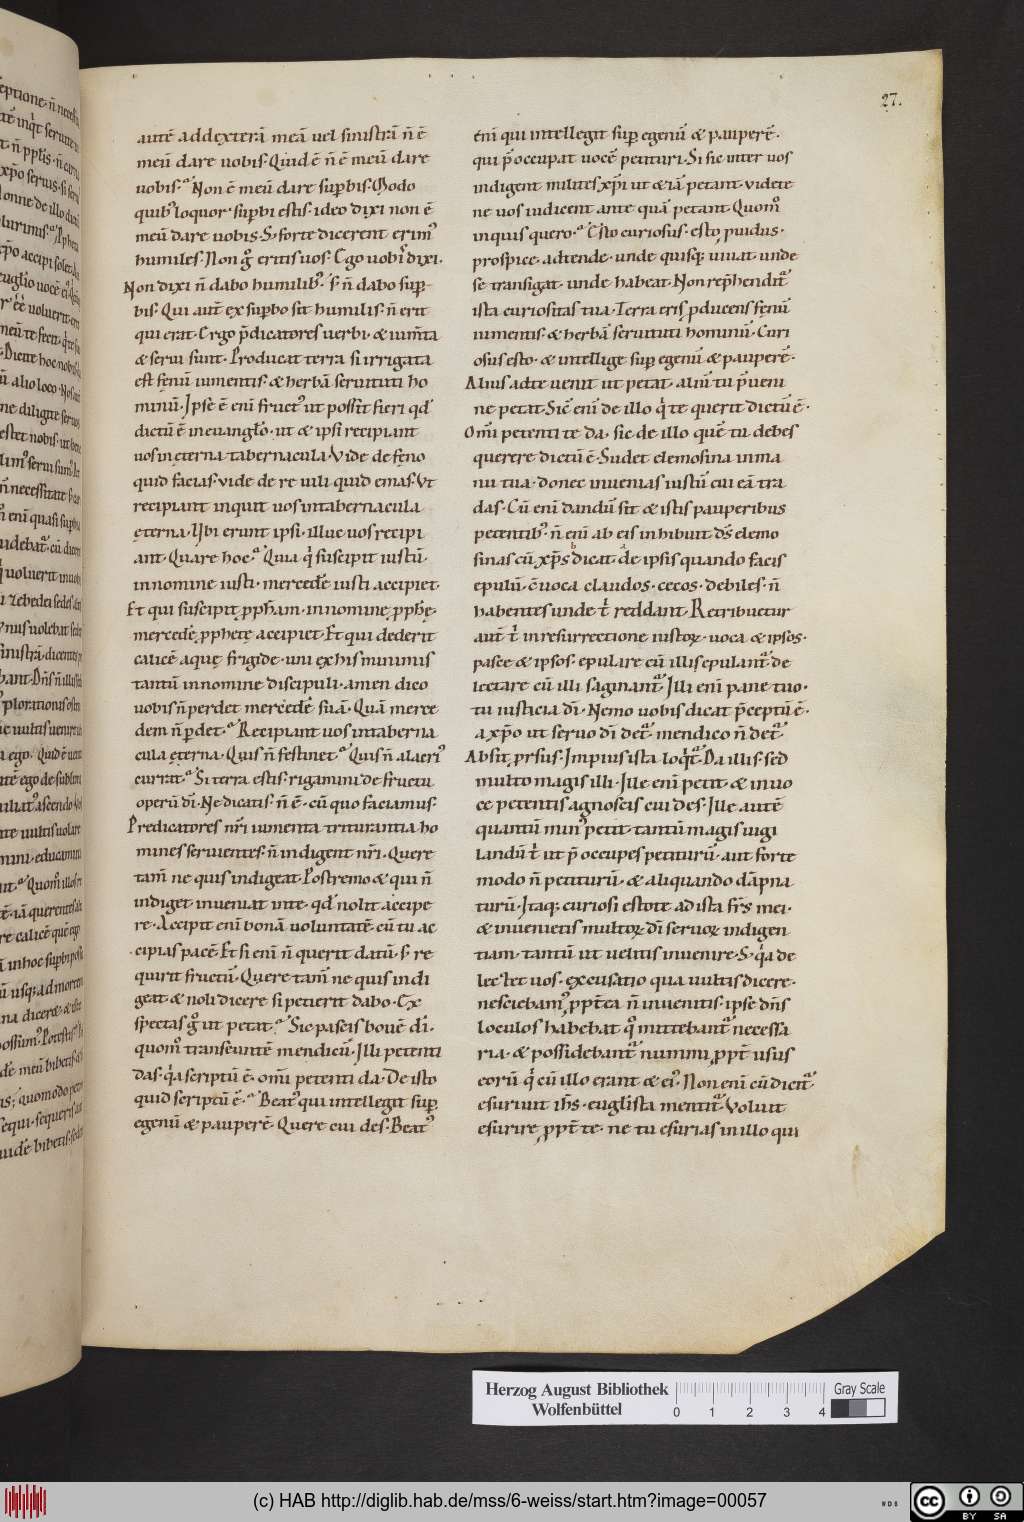 27.
autē ad dexterā meā uel sinistrā n̄ ē
meū dare uobis· Quid ē n̄ ē meū dare
uobis·? Non ē meū dare sup̱bis· Modo
quib; loquor· sup̱bi estis· ideo dixi non ē
meū dare uobis· S; forte dicerent erim᷒
humiles· Non g̊ eritis uos· Ego uobis dixi·
Non dixi n̄ dabo humilib᷒· s; n̄ dabo sup̱
bis· Qui autē ex sup̱bo fit humilis· n̄ erit
qui erat· Ergo p̄dicatores uerbi· & ium̄ta
& serui sunt· Producat terra si irrigata
est fenū iumentis· & herbā seruituti ho
minū· Ipse ē enī fruct᷒ ut possit fieri qd̄
dictū ē in euangl̄o· ut & ipsi recipiant
uos in ęterna tabernacula· Vide de fęno
quid facias· uide de re uili quid emas· Vt
recipiant inquit uos in tabernacula
ęterna· Ubi erunt ipsi· illuc uos recipi
ant· Quare hoc·? Quia q̇ suscipit iustū·
in nomine iusti· mercedē iusti accipiet·
Et qui suscipit p̱ph̄am· in nomine p̱phę·
mercedē p̱phetę accipiet· Et qui dederit
calicē aquę frigidę· uni ex his minimis
tantū in nomine discipuli· amen dico
uobis n̄ perdet mercedē suā· Quā merce
dem n̄ p̱det·? Recipiant uos in taberna
cula ęterna· Quis n̄ festinet·? Quis n̄ alacri᷒
currat·? Si terra estis· rigamini de fructu
operū dī· Ne dicatis· n̄ ē· cū quo faciamus·
Predicatores nr̄i iumenta triturantia ho
mines seruientes· n̄ indigent nr̄i· Quere
tam̄ ne quis indigeat· Postremo & qui n̄
indiget inueniat in te· qd̄ nolit accipe
re· Accipit enī bonā uoluntatē· cū tu ac
cipias pacē· Et si enī n̄ querit datū· s; re
quirit fructū· Quere tam̄ ne quis indi
geat· & noli dicere si petierit dabo· Ex
spectas g̊ ut petat·? Sic pascis bouē dī·
quom̊ transeuntē mendicū· Illi petenti
das· q̇a scriptū ē· om̄i petenti da· De isto
quid scriptū ē·? Beat᷒ qui intellegit sup̱
egenū & pauperē· Quere cui des· Beat᷒
enī qui intellegit sup̱ egenū & paup̱erē·
qui p̄occupat uocē petituri· Si sic inter uos
indigent milites xp̄i ut & iā petant· uidete
ne uos iudicent ante quā petant· Quom̊
inquis quero·? Esto curiosus· esto p̱uidus·
prospice· adtende· unde quisq; uiuat· unde
se transigat· unde habeat· Non rep̄hendit᷑
ista curiositas tua· Terra tris p̱ducens fenū
iumentis· & herbā seruituti hominū· Curi
osus esto· & intellige sup̱ egenū & pauperē·
Alius ad te uenit ut petat· aliū tu p̄ueni
ne petat· Sic enī de illo q̇ te querit dictū ē·
Om̄i petenti te da· sic de illo quē tu debes
querere dictū ē· Sudet elemosina in ma
nu tua· donec inuenias iustū cui eā tra
das· Cū enī dandū sit & istis pauperibus
petentib᷒· n̄ enī ab eis inhibuit ds̄ elemo
sinas cū xp̄s dicat de ipsis quando facis
epulū· cōuoca claudos· cecos· debiles· n̄
habentes unde t̄ reddant· Retribuetur
aut̄ t̄ in resurrectione iustoꝝ· uoca & ipsos·
pasce & ipsos· epulare cū illis epulant᷑· de
lectare cū illi saginant᷑· Illi enī pane tuo·
tu iusticia dī· Nemo uobis dicat p̄ceptū ē·
a xp̄o ut seruo dī det᷑· mendico n̄ det᷑·
Absit prsus· Impius ista loq̇t᷑· Da illis· sed
multo magis illi· Ille enī petit & in uo
ce petentis agnoscis cui des· Ille autē
quantū min᷒ petit· tantū magis uigi
landū t̄ ut p̄occupes petiturū· aut forte
modo n̄ petiturū· & aliquando dāpna
turū· Itaq; curiosi estote ad ista fr̄s mei·
& inuenietis multoꝝ dī seruoꝝ indigen
tiam· tantū ut uelitis inuenire· S; q̇a de
lectet uos· excusatio qua uultis dicere·
nesciebam᷒· p̱pt̄ea n̄ inuenitis· ipse dn̄s
loculos habebat q̊ mittebant᷑ necessa
ria· & possidebant᷑ nummi p̱pt̄ usus
eorū q̇ cū illo erant & ei᷒· Non enī cū dicit᷑
esuriuit ih̄s· euglista mentit᷑· Voluit
esurire p̱pt̄ te· ne tu esurias in illo qui
Herzog August Bibliothek
Wolfenbüttel
0 1 2 3 4
Gray Scale
(c) HAB http://diglib.hab.de/mss/6-weiss/start.htm?image=00057
WDB
cc BY SA